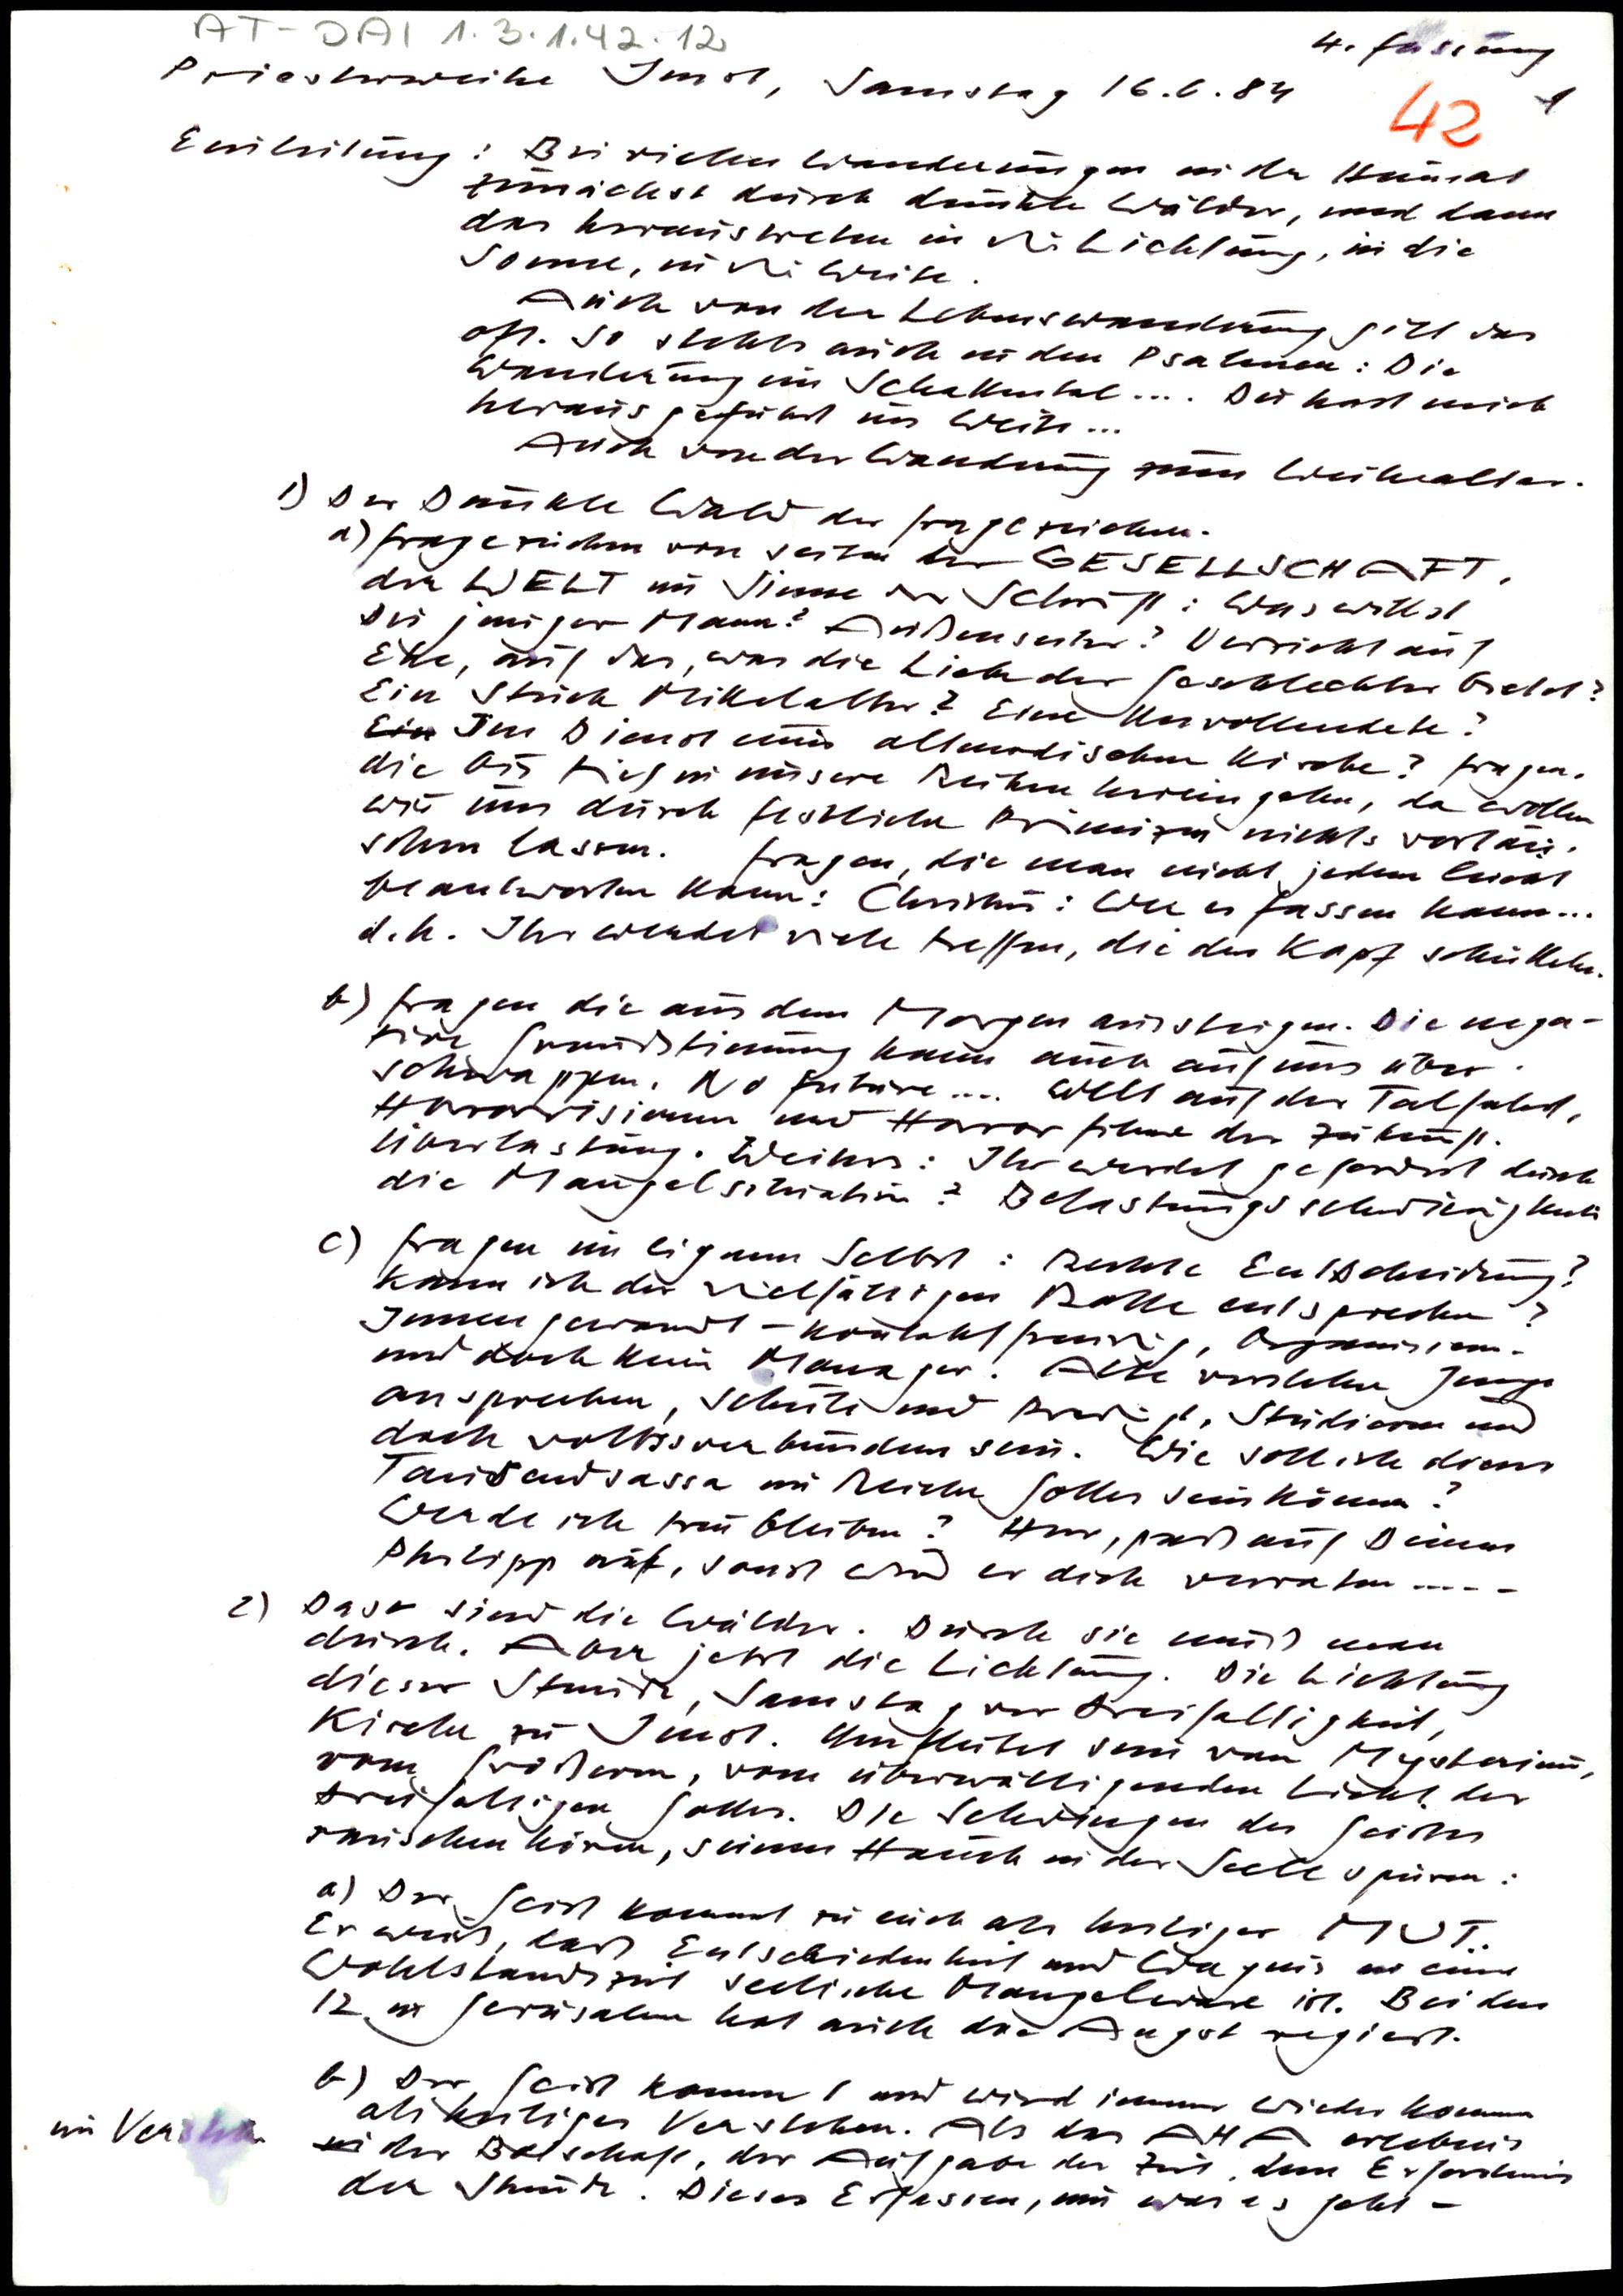 AT-DAI 1.3.1.42.12
4. Fassung
Priesterweihe Imst, Samstag 16.6.84
42
1
Einleitung: Bei vielen Wanderungen in der Heimat
zunächst durch dunkle Wälder, und dann
das heraustreten in die Lichtung, in die
Sonne, in die Weite.
Auch von der Lebenswanderung gilt das
oft. So stehts auch in den Psalmen: Die
Wanderung im Schattental .... Du hast mich
herausgeführt ins Weite...
Auch von der Wanderung zum Weihealtar.
1) Der Dunkle Wald der Fragezeichen.
a) Fragezeichen von seiten der GESELLSCHAFT,
der WELT im Sinne der Schrift: Was willst
Du junger Mann? Außenseiter? Verzicht auf
Ehe, auf das, was die Liebe der Geschlechter bietet?
Ein Stück Mittelalter? Eine Unvollendete?
Ein Im Dienst einer altmodischen Kirche? Fragen,
die bis tief in unsere Reihen hereingehen, da wollen
wir uns durch festliche Primizen nichts vortäu-
schen lassen. Fragen, die man nicht jedem leicht
beantworten kann: Christus: Wer es fassen kann...
d.h. Ihr werdet viele treffen, die den Kopf schütteln.
b) Fragen die aus dem Morgen aufsteigen. Die nega-
tive Grundstimmung kann auch auf uns über-
schwappen. No future .... Welt auf der Talfahrt,
Horrorvisionen und Horrorfilme der Zukunft.
Überlastung. Weiters: Ihr werdet gefordert durch
die Mangelsituation? Belastungsschwierigkeit
c) Fragen im eigenen Selbst: Rechte Entscheidung?
Kann ich der vielfältigen Rolle entsprechen?
Innengewandt - kontaktfreudig, Organisieren-
und doch kein Manager. Alte verstehen Junge
ansprechen, Schule und Predigt, Studieren und
doch volksverbunden sein. Wie soll ich dieser
Tausendsassa im Reiche Gottes sein können?
Werde ich treu bleiben? Herr, paß auf Deinen
Philipp auf, sonst wird er dich verraten .....
2) Das sind die Wälder. Durch sie muß man
durch. Aber jetzt die Lichtung. Die Lichtung
dieser Stunde, Samstag vor Dreifaltigkeit,
Kirche zu Imst. Umflutet sein vom Mysterium,
vom Größeren, vom überwältigenden Licht des
dreifaltigen Gottes. Die Schwingen des Geistes
rauschen hören, seinen Hauch in der Seele spüren:
a) Der Geist kommt zu euch als heiliger MUT.
Er weiß, daß Entschiedenheit und Wagnis in einer
Wohlstandszeit seelische Mangelware ist. Bei den
12 in Jerusalem hat auch die Angst regiert.
b) Der Geist kommt und wird immer wieder kommen
als heiliges Verstehen. Als das AHA erlebnis
im Verstehen
in der Botschaft, der Aufgabe der Zeit, dem Erfordernis
der Stunde. Dieses Erfassen, um was es geht -